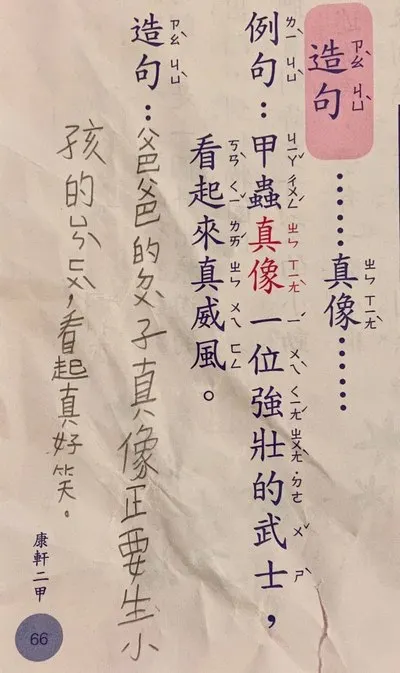 造句
………真像………
例句：甲蟲真像一位強壯的武士，
看起來真威風。
造句：爸爸的ㄉㄨˋ子真像正要生小
孩的ㄩㄣˋㄈㄨˋ，看起真好笑。
康軒二甲
66